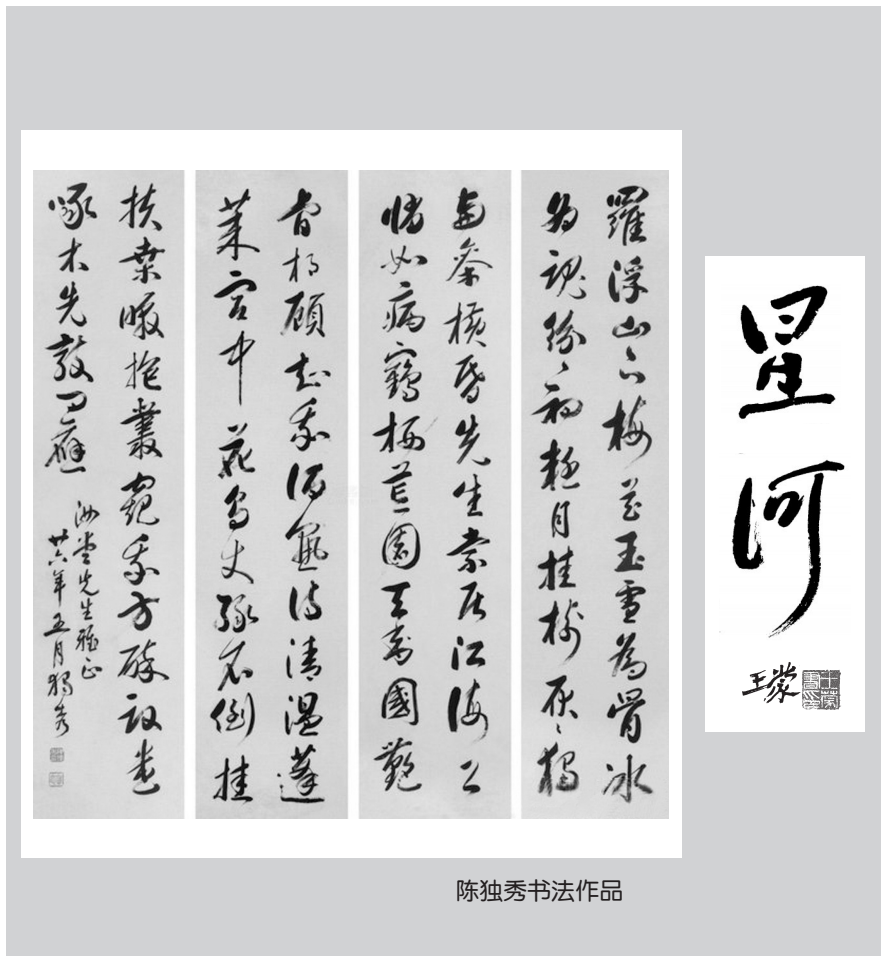 羅浮山下梅花玉雪為骨冰
為魂紛〻初疑月挂樹耿〻獨
與參橫昏先生索居江海上
悄如病鶴栖荒園天香國艷
肯相顧知我酒熟詩清溫蓬
萊宮中花鳥使綠衣倒挂
扶桑暾抱叢窺我方醉故遣
啄木先敲門
先生雅正
廿六年五月獨秀
星河
王蒙
陈独秀书法作品